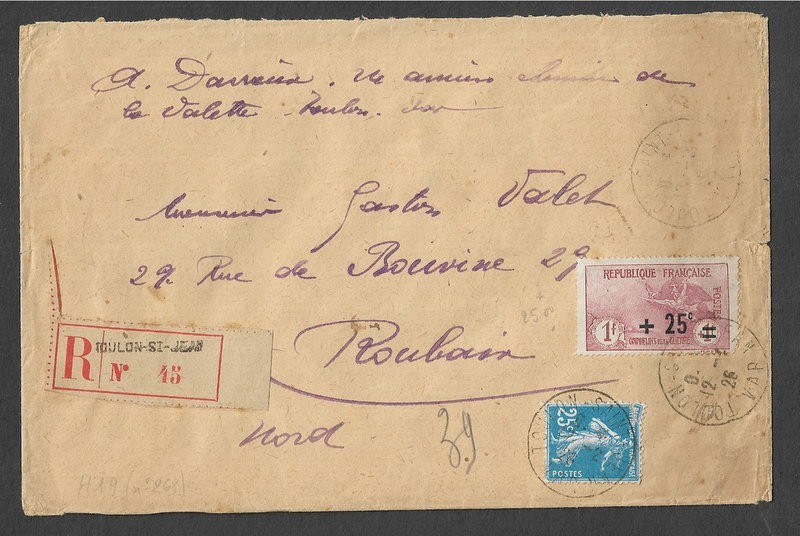 A. Darreux. ancien chemin de
la Valette Toulon. Var
Monsieur Gaston Valet
29. Rue de Bouvine 29
Roubaix
Nord
R
TOULON-ST-JEAN
N° 45
REPUBLIQUE FRANÇAISE
POSTES
1f
+ 25c
ORPHELINS DE LA GUERRE
+
25
TOULON-ST-JEAN
VAR
12
26
25c
POSTES
39
H19 (n° 268)